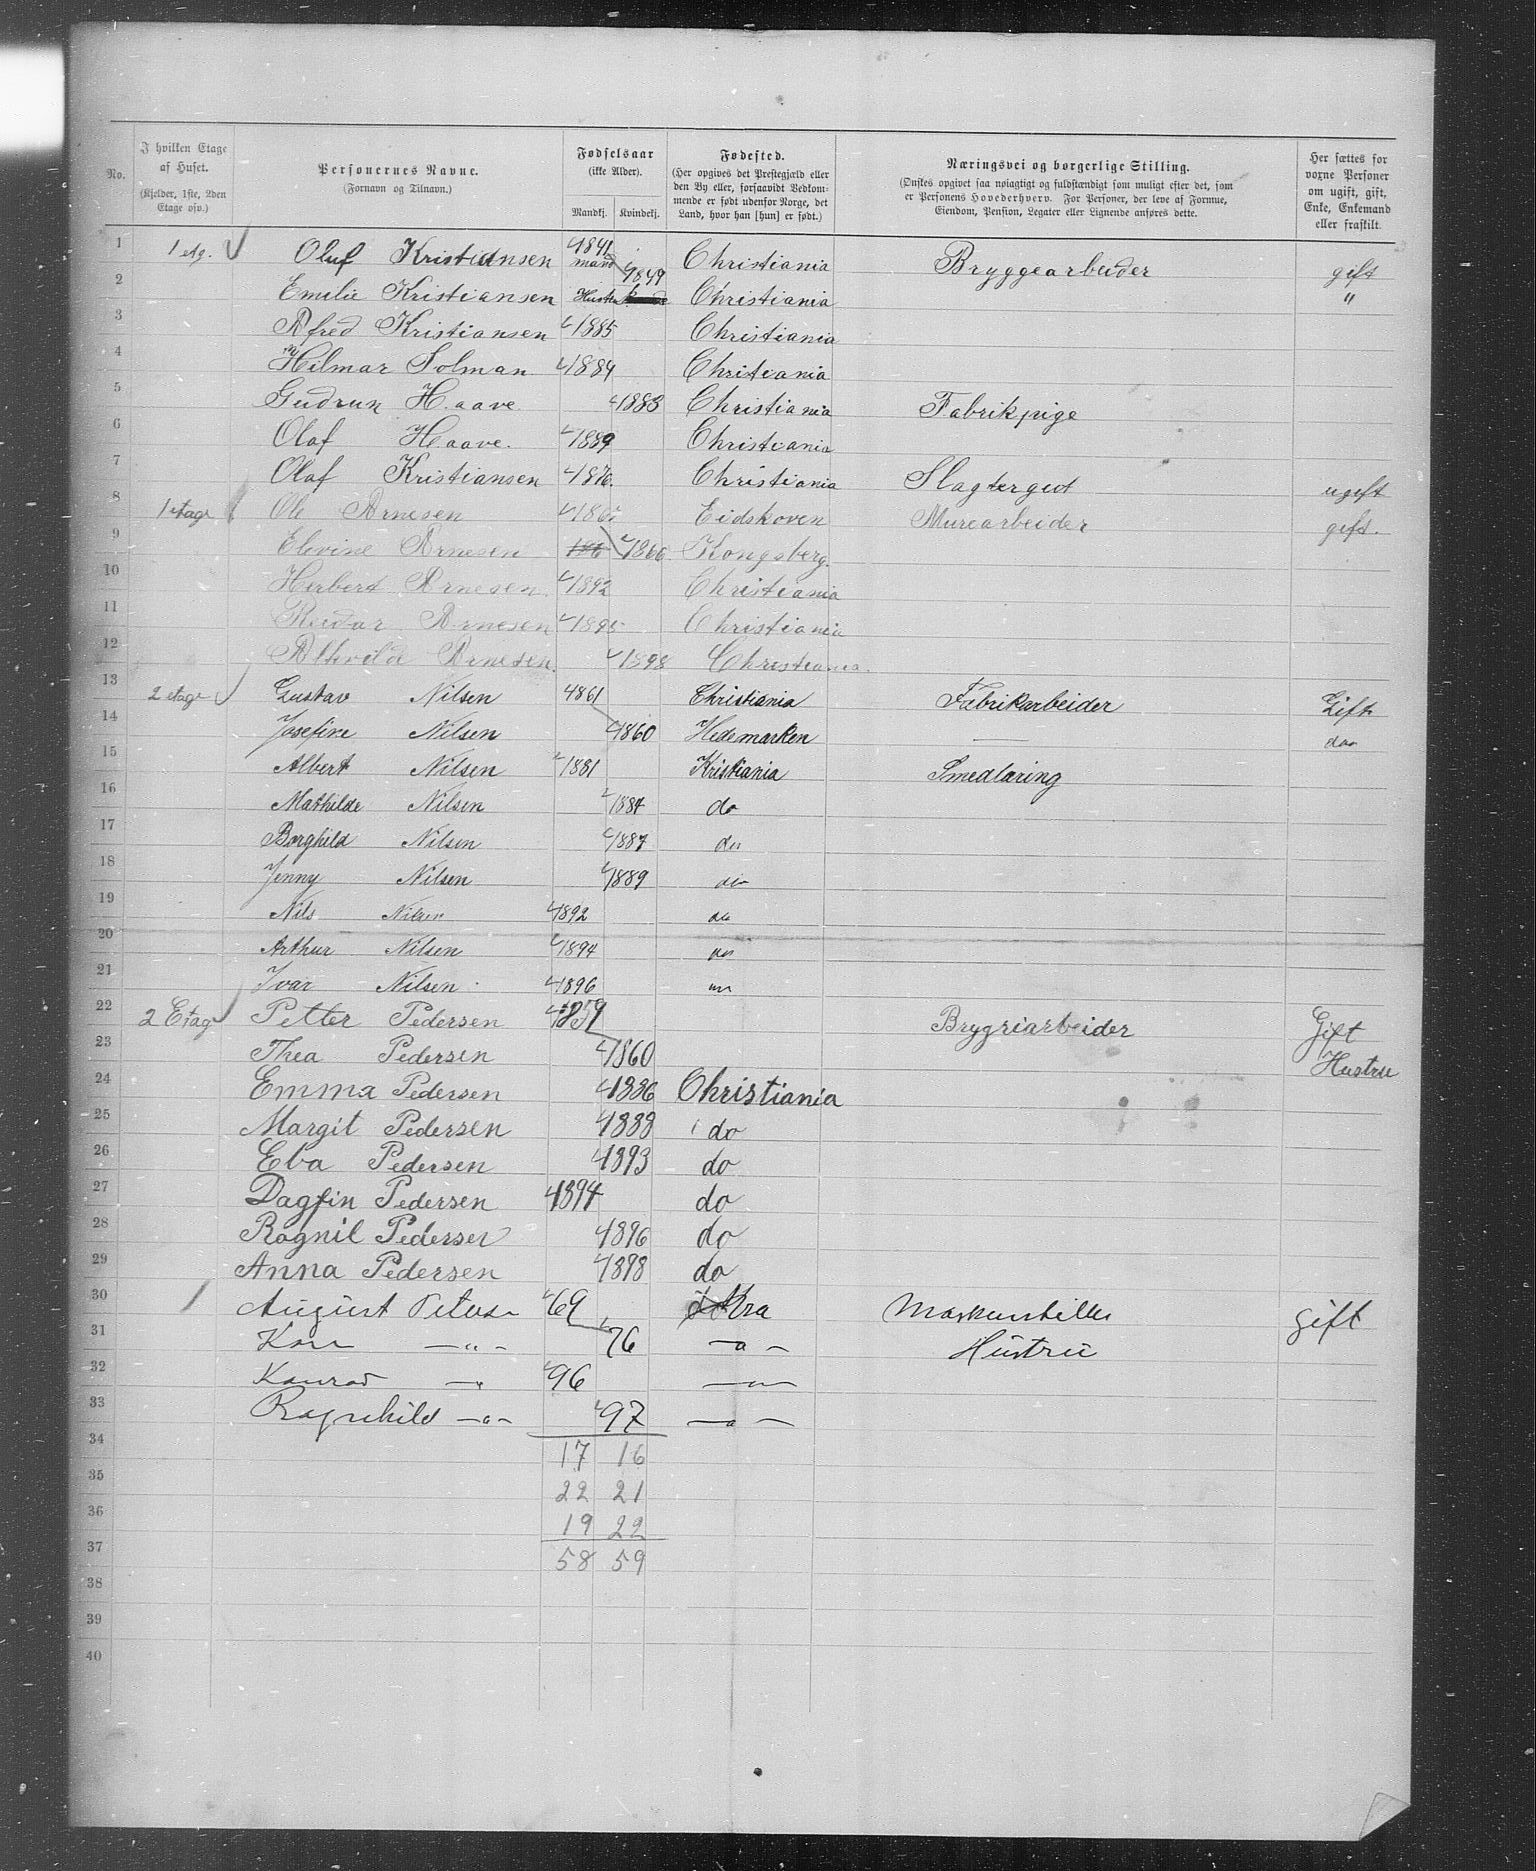 No. | I hvilken Etage af Huset. (Kjelder, 1ste, 2den Etage osv.) | Personernes Navne. (Fornavn og Tilnavn.) | Fødselsaar (ikke Alder). Mandkj. Kvindekj. | Fødested. (Her opgives det Prestegjæld eller den By eller, forsaavidt Vedkommende er født udenfor Norge, det Land, hvor han [hun] er født.) | Næringsvei og borgerlige Stilling. (Ønskes opgivet saa nøiagtigt og fuldstændigt som muligt efter det, som er Personens Hovederhverv. For Personer, der leve af Formue, Eiendom, Pension, Legater eller Lignende anføres dette. | Her sættes for voxne Personer om ugift, gift, Enke, Enkemand eller fraskilt.
1 1 etg. Oluf Kristiansen 1841 mand Christiania Bryggearbeider gift
2 Emilie Kristiansen 1849 Christiania "
3 Alfred Kristiansen 1885 Christiania
4 Hilmar Solman 1884 Christiania
5 Gudrun Haave 1883 Christiania Fabrikpige
6 Olaf Haave. 1889 Christiania
7 Olaf Kristiansen 1876. Christiania Slagtergut ugift
8 1 etage Ole Arnesen Eidskoven Murearbeider gift.
9 Elevine Arnesen 1866 Kongsberg.
10 Herbert Arnesen. 1892 Christiania
11 Reidar Arnesen 1895 Christiania
12 Arnesen. 1898 Christiania.
13 2 etage Gustav Nilsen 1861 Christiania Fabrikarbeider Gift
14 Josefine Nilsen 1860 Hedemarken — do
15 Albert Nilsen 1881 Kristiania Smedlæring
16 Mathilde Nilsen 1884 do
17 Borghild Nilsen 1887 do
18 Jenny Nilsen 1889 do
19 Nils Nilsen 1892 do
20 Arthur Nilsen 1894 do
21 Ivar Nilsen 1896 do
22 2 Etag Petter Pedersen 1859 Brygriarbeider Gift
23 Thea Pedersen 1860 Hustru
24 Emma Pedersen 1886 Christiania
25 Margit Pedersen 1888 do
26 Eba Pedersen 1893 do
27 Dagfin Pedersen 1894 do
28 Ragnil Pedersen 1896 do
29 Anna Pedersen 1898 do
30 August 69 Kra gift
31 — " — 76 — " — Hustru
32 Konrad — " 96 — " —
33 Ragnhild — " — 97 — " —
34 17 16
35 22 21
36 19 22
37 58 59
38
39
40